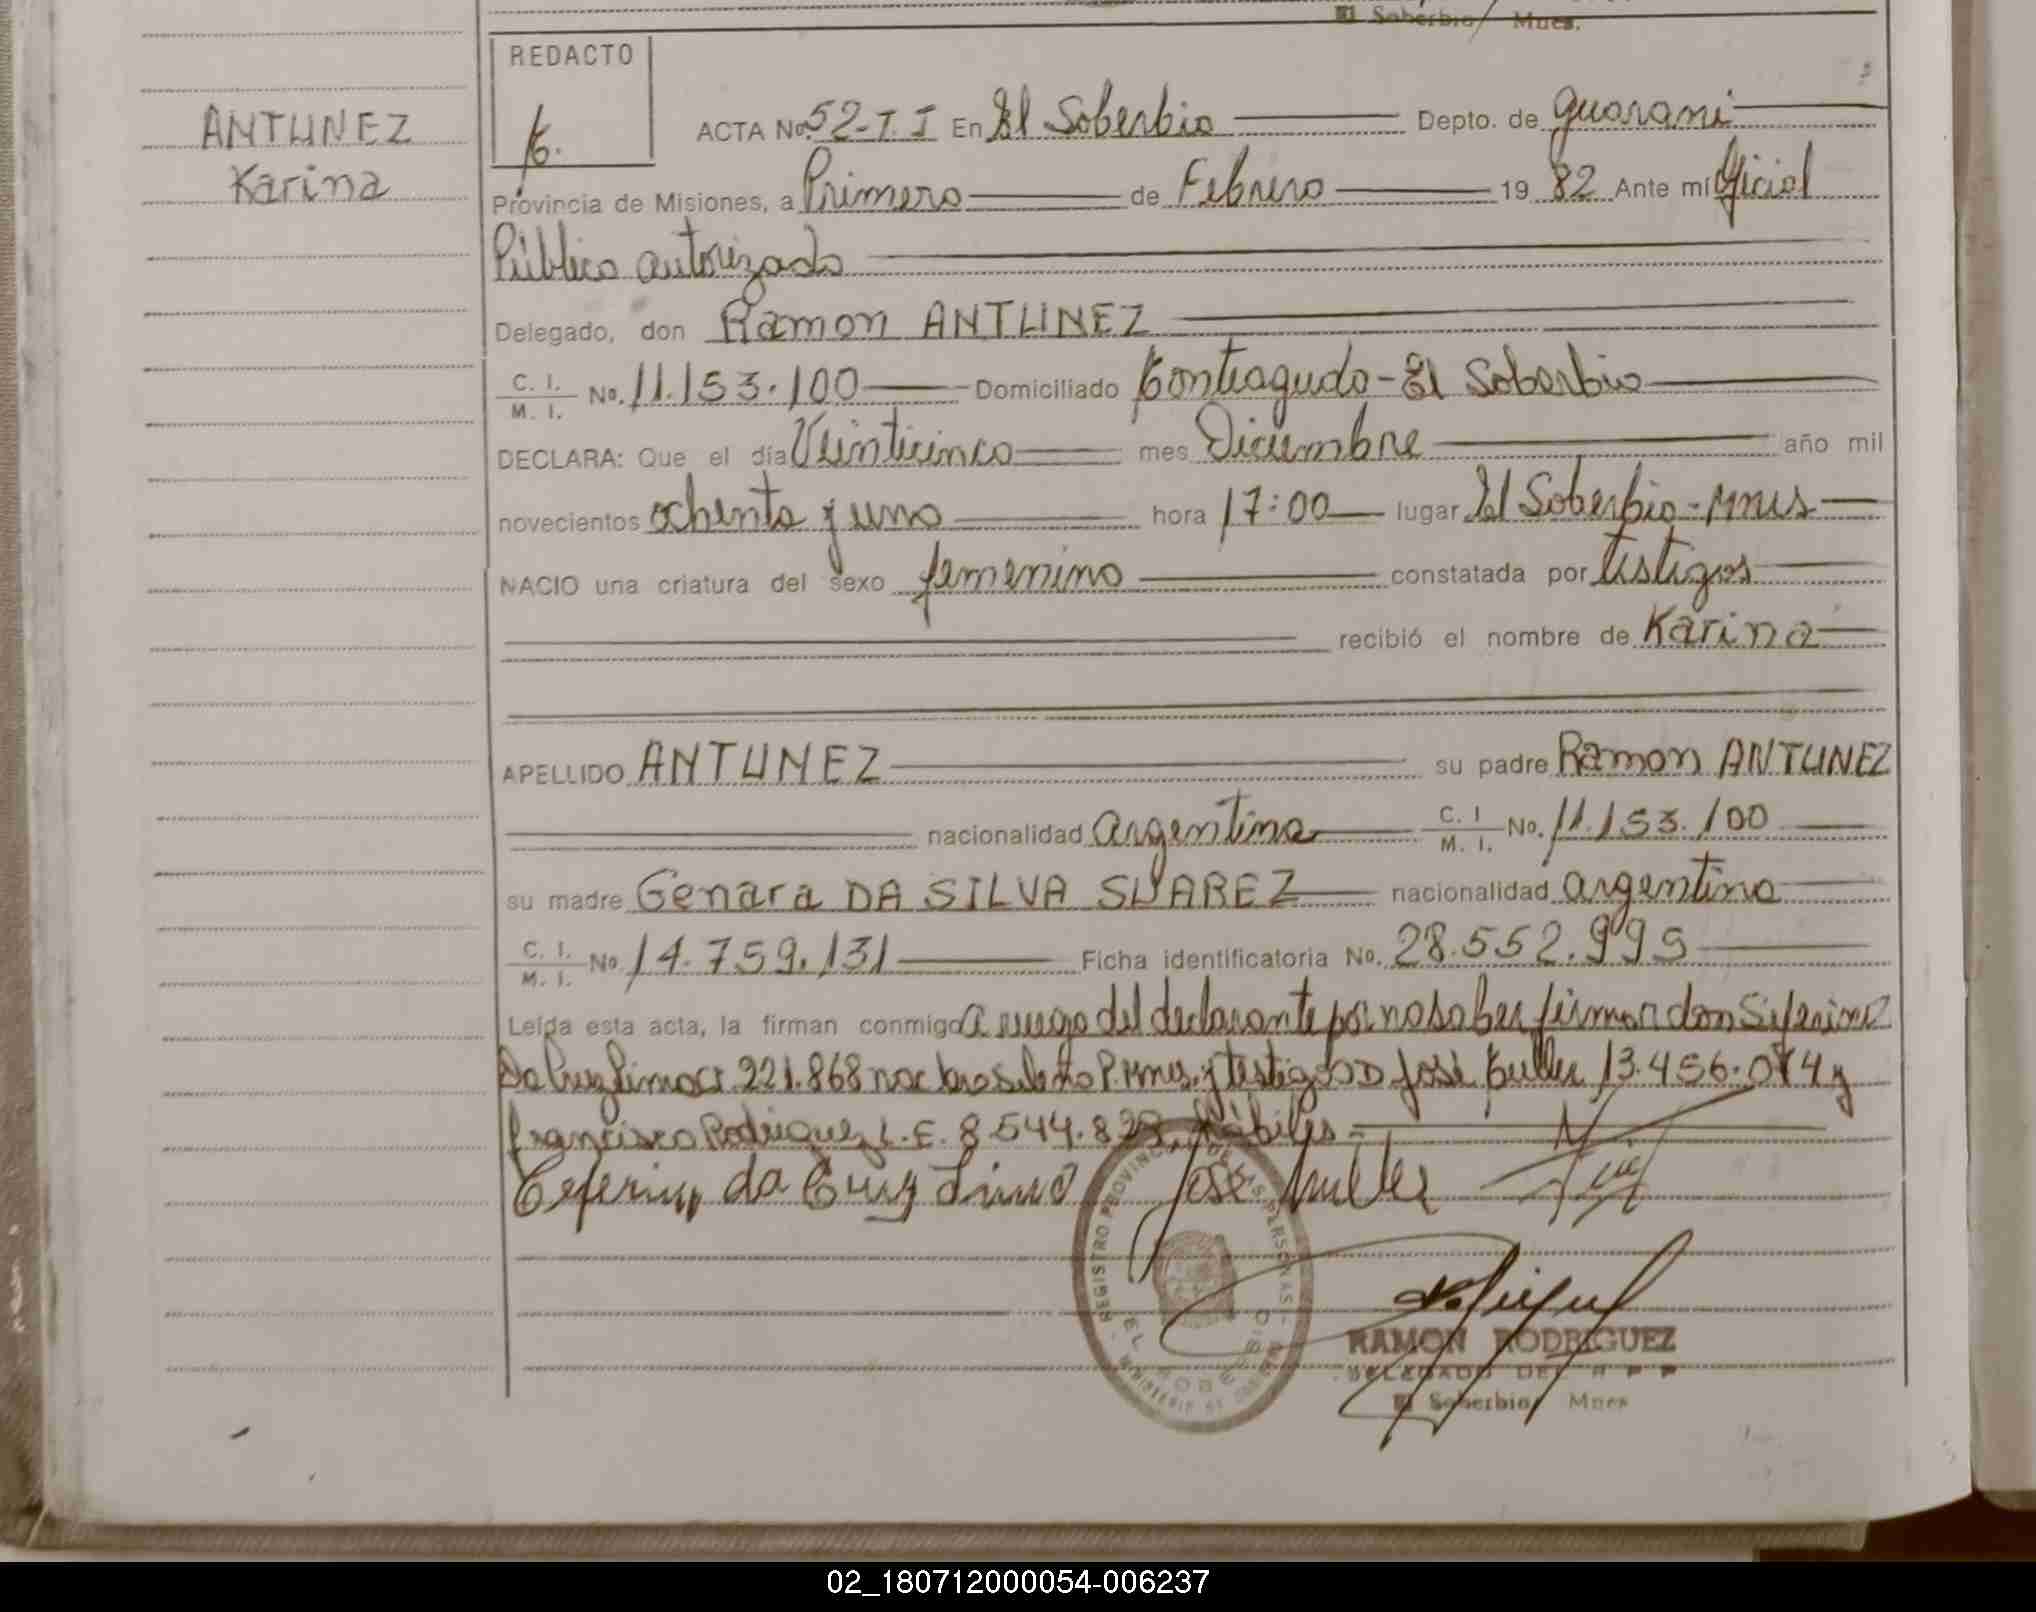 El Soberbio Mnes.
REDACTO
ANTUNEZ
Karina
ACTA No. 52-T.I En El Soberbio Depto. de Guarani
Provincia de Misiones, a Primero de Febrero 19 82 Ante mí Oficial
Público autorizado
Delegado, don Ramon ANTUNEZ
C. I. M. I. No. 11.153.100 Domiciliado Monteagudo - El Soberbio
DECLARA: Que el día Veinticinco mes Diciembre año mil
novecientos ochenta y uno hora 17:00 lugar El Soberbio - Mnes
NACIO una criatura del sexo femenino constatada por testigos
recibió el nombre de Karina
APELLIDO ANTUNEZ su padre Ramon ANTUNEZ
nacionalidad argentina C. I M. I. No. 11.153.100
su madre Genara DA SILVA SUAREZ nacionalidad argentina
C. I. M. I. No 14.759.131 Ficha identificatoria No. 28.552.995
Leída esta acta, la firman conmigo a ruego del declarante por no saber firmar don Siferino
Da Cruz Lima CI 221.868 P. Mnes. y testigos D José 13.456.074 y
Francisco Rodriguez L.E. 8544.829 Hábiles
Ceferino da Cruz Lima José Muller
REGISTRO PROVINCIAL DE LAS PERSONAS
EL SOBERBIO
RAMON RODRIGUEZ
DELEGADO DEL R P P
El Soberbio Mnes
02_180712000054-006237